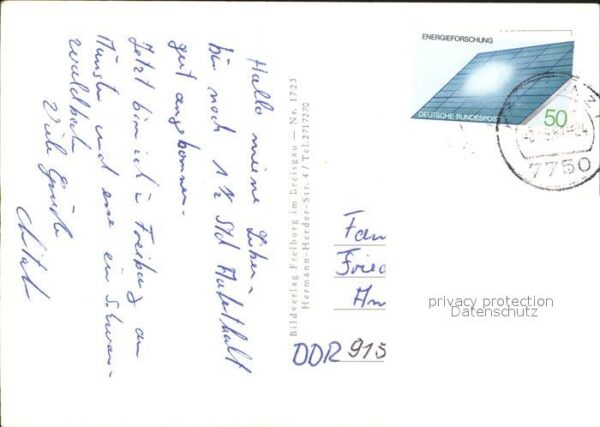 Hallo meine Lieben
bin nach 1 1/2 Std Aufenthalt
gut angekommen.
Jetzt bin ich in Freiburg am
Münster und esse ein Schwarz-
wald
Viele Grüße
Bildverlag Freiburg im Breisgau — Nr. 1723
Hermann-Herder-Str. 4 / Tel. 2717270
ENERGIEFORSCHUNG
DEUTSCHE BUNDESPOST
50
7750
Fam
Fried
Am
DDR 915
privacy protection
Datenschutz